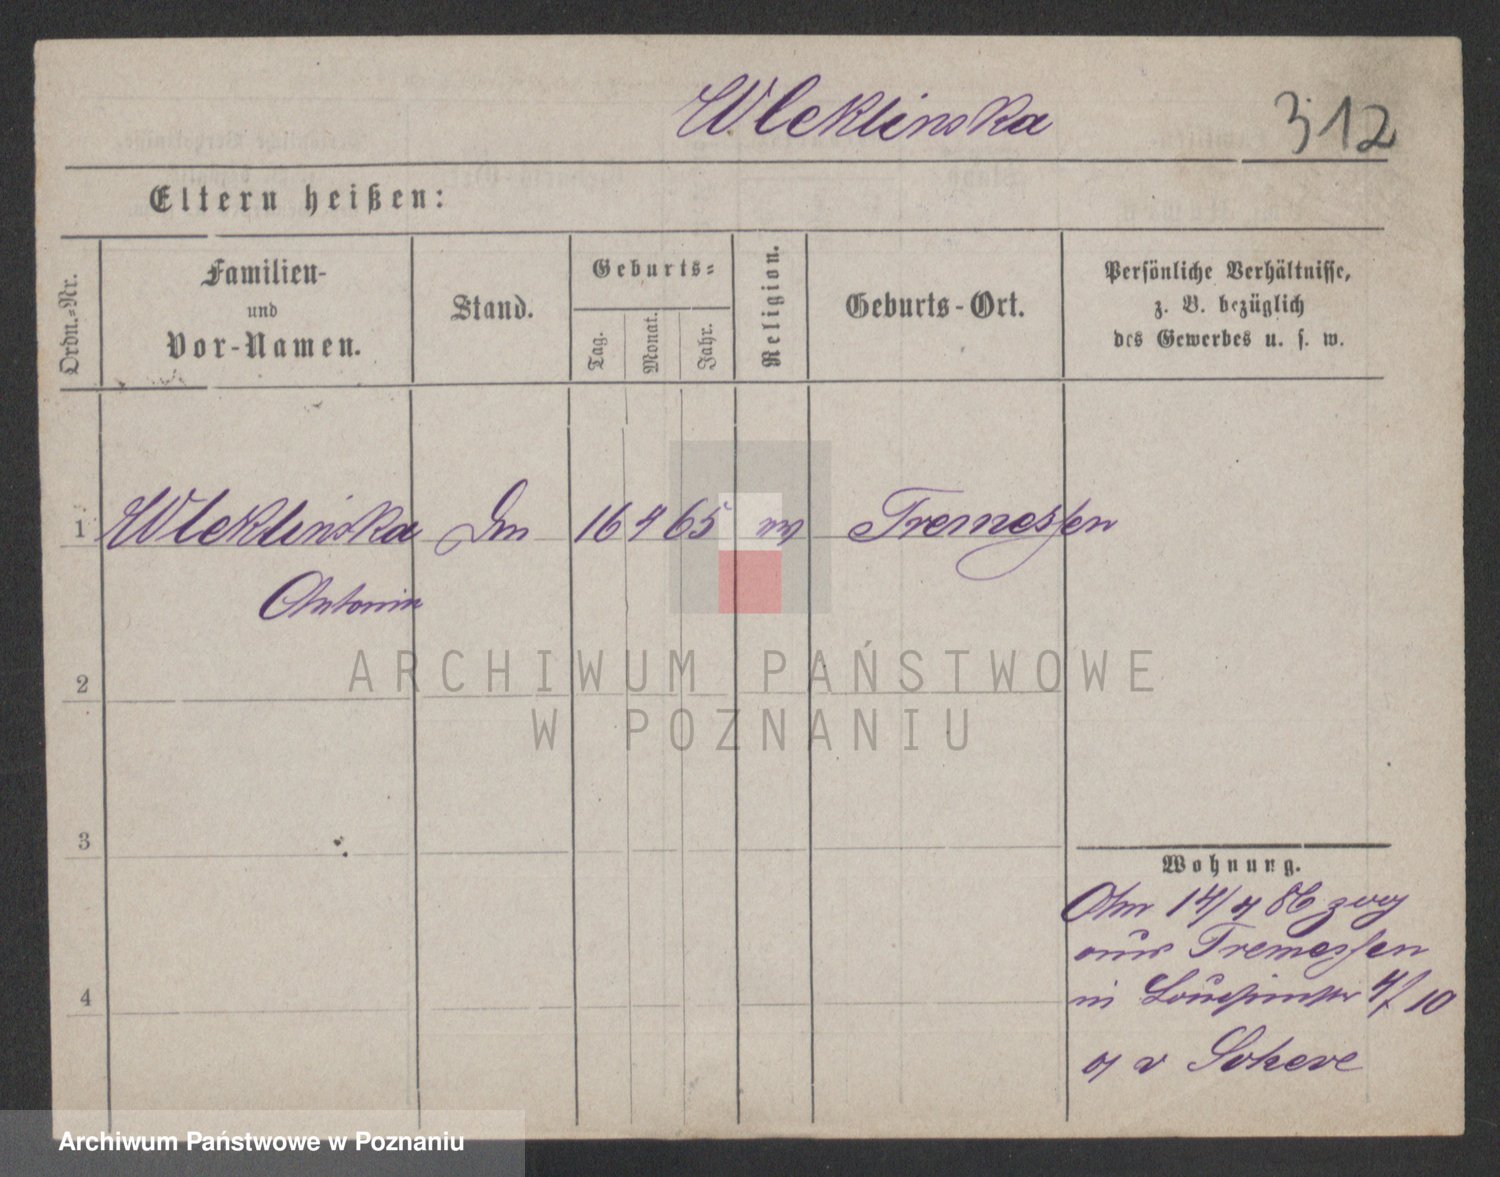 Wleklinska 312
Eltern heißen:
Ordn.-Nr.
Familien-
und
Vor-Namen.
Stand.
Geburts-
Tag.
Monat.
Jahr.
Religion.
Geburts-Ort.
Persönliche Verhältnisse,
z. B. bezüglich
des Gewerbes u. s. w.
1 Wleklinska 16 4 65 Tremessen
Antonin
ARCHIWUM PAŃSTWOWE
W POZNANIU
2
3
4
Wohnung.
14/4 86 zug
aus Tremessen
in 4/10
v
Archiwum Państwowe w Poznaniu